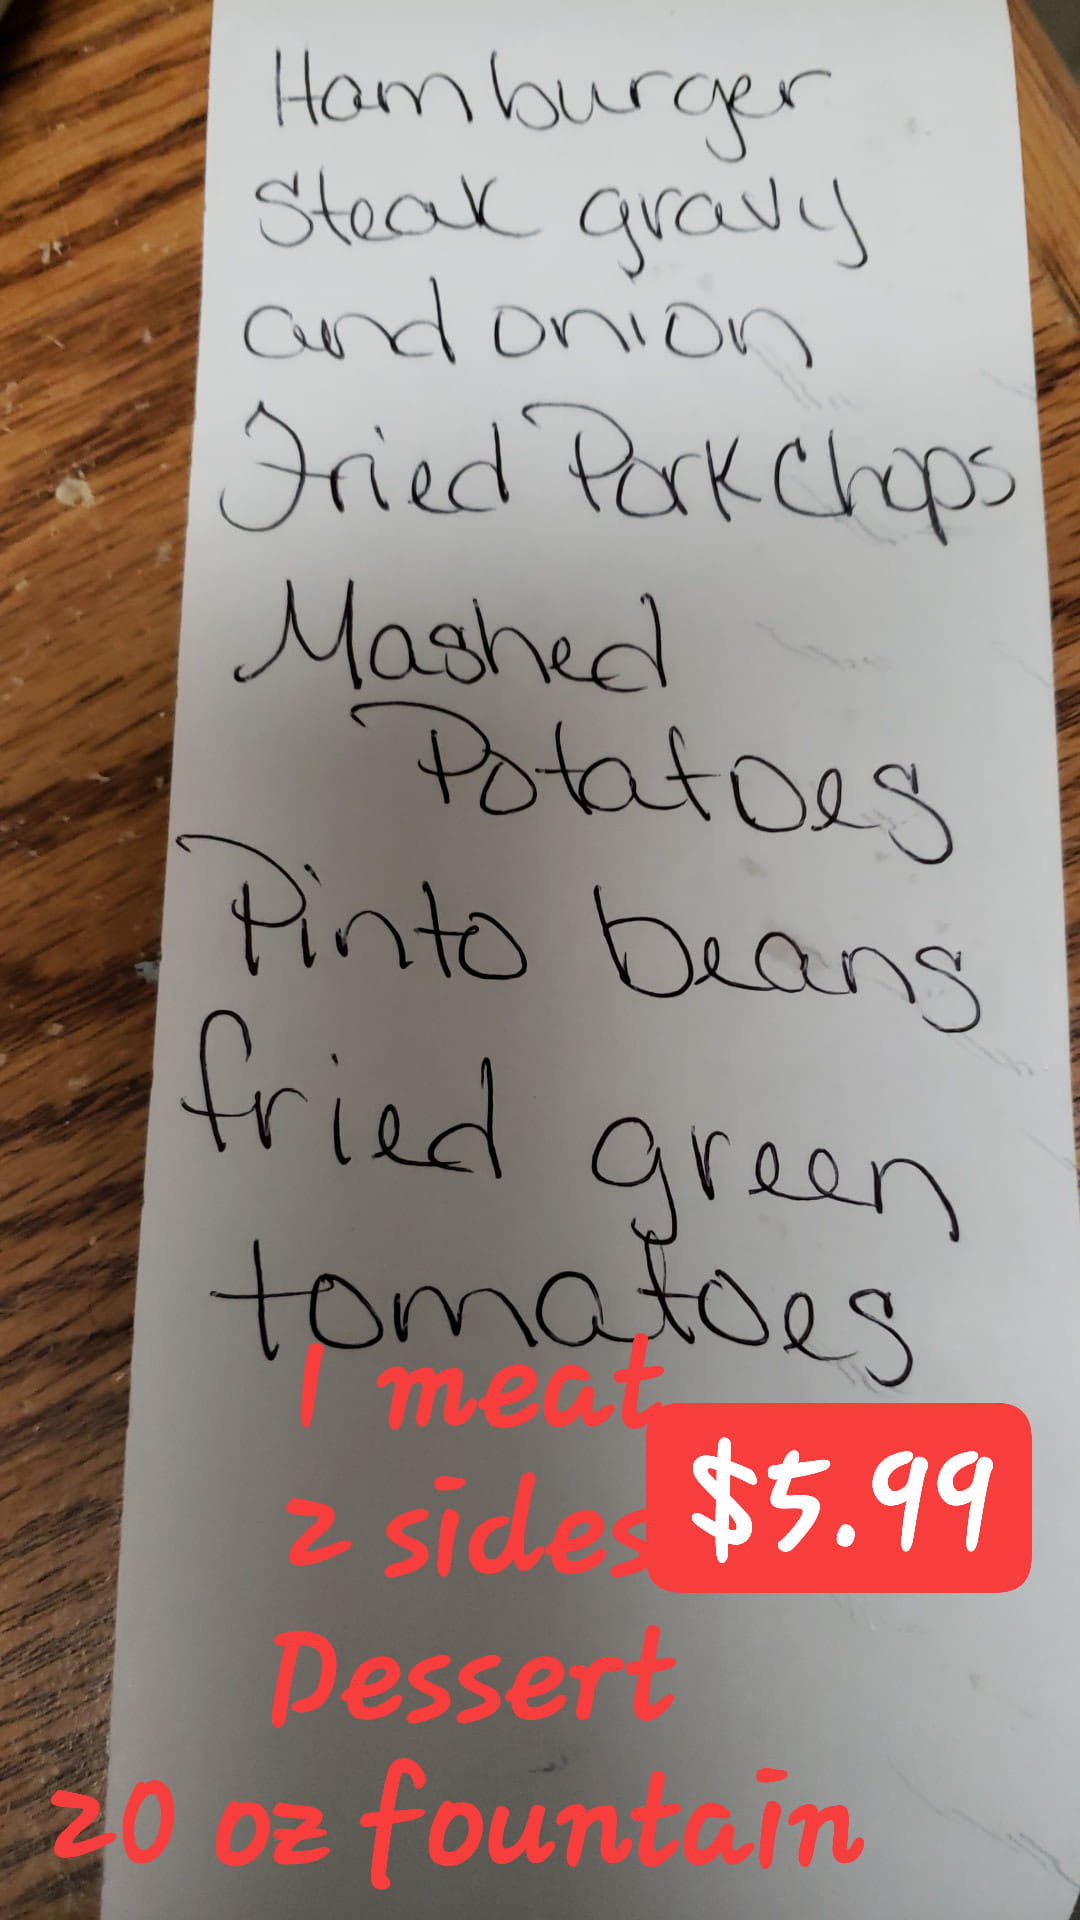 Hamburger
Steak gravy
and onion
Fried Pork Chops
Mashed
Potatoes
Pinto beans
fried green
tomatoes
1 meat
2 sides
$5.99
Dessert
20 oz fountain